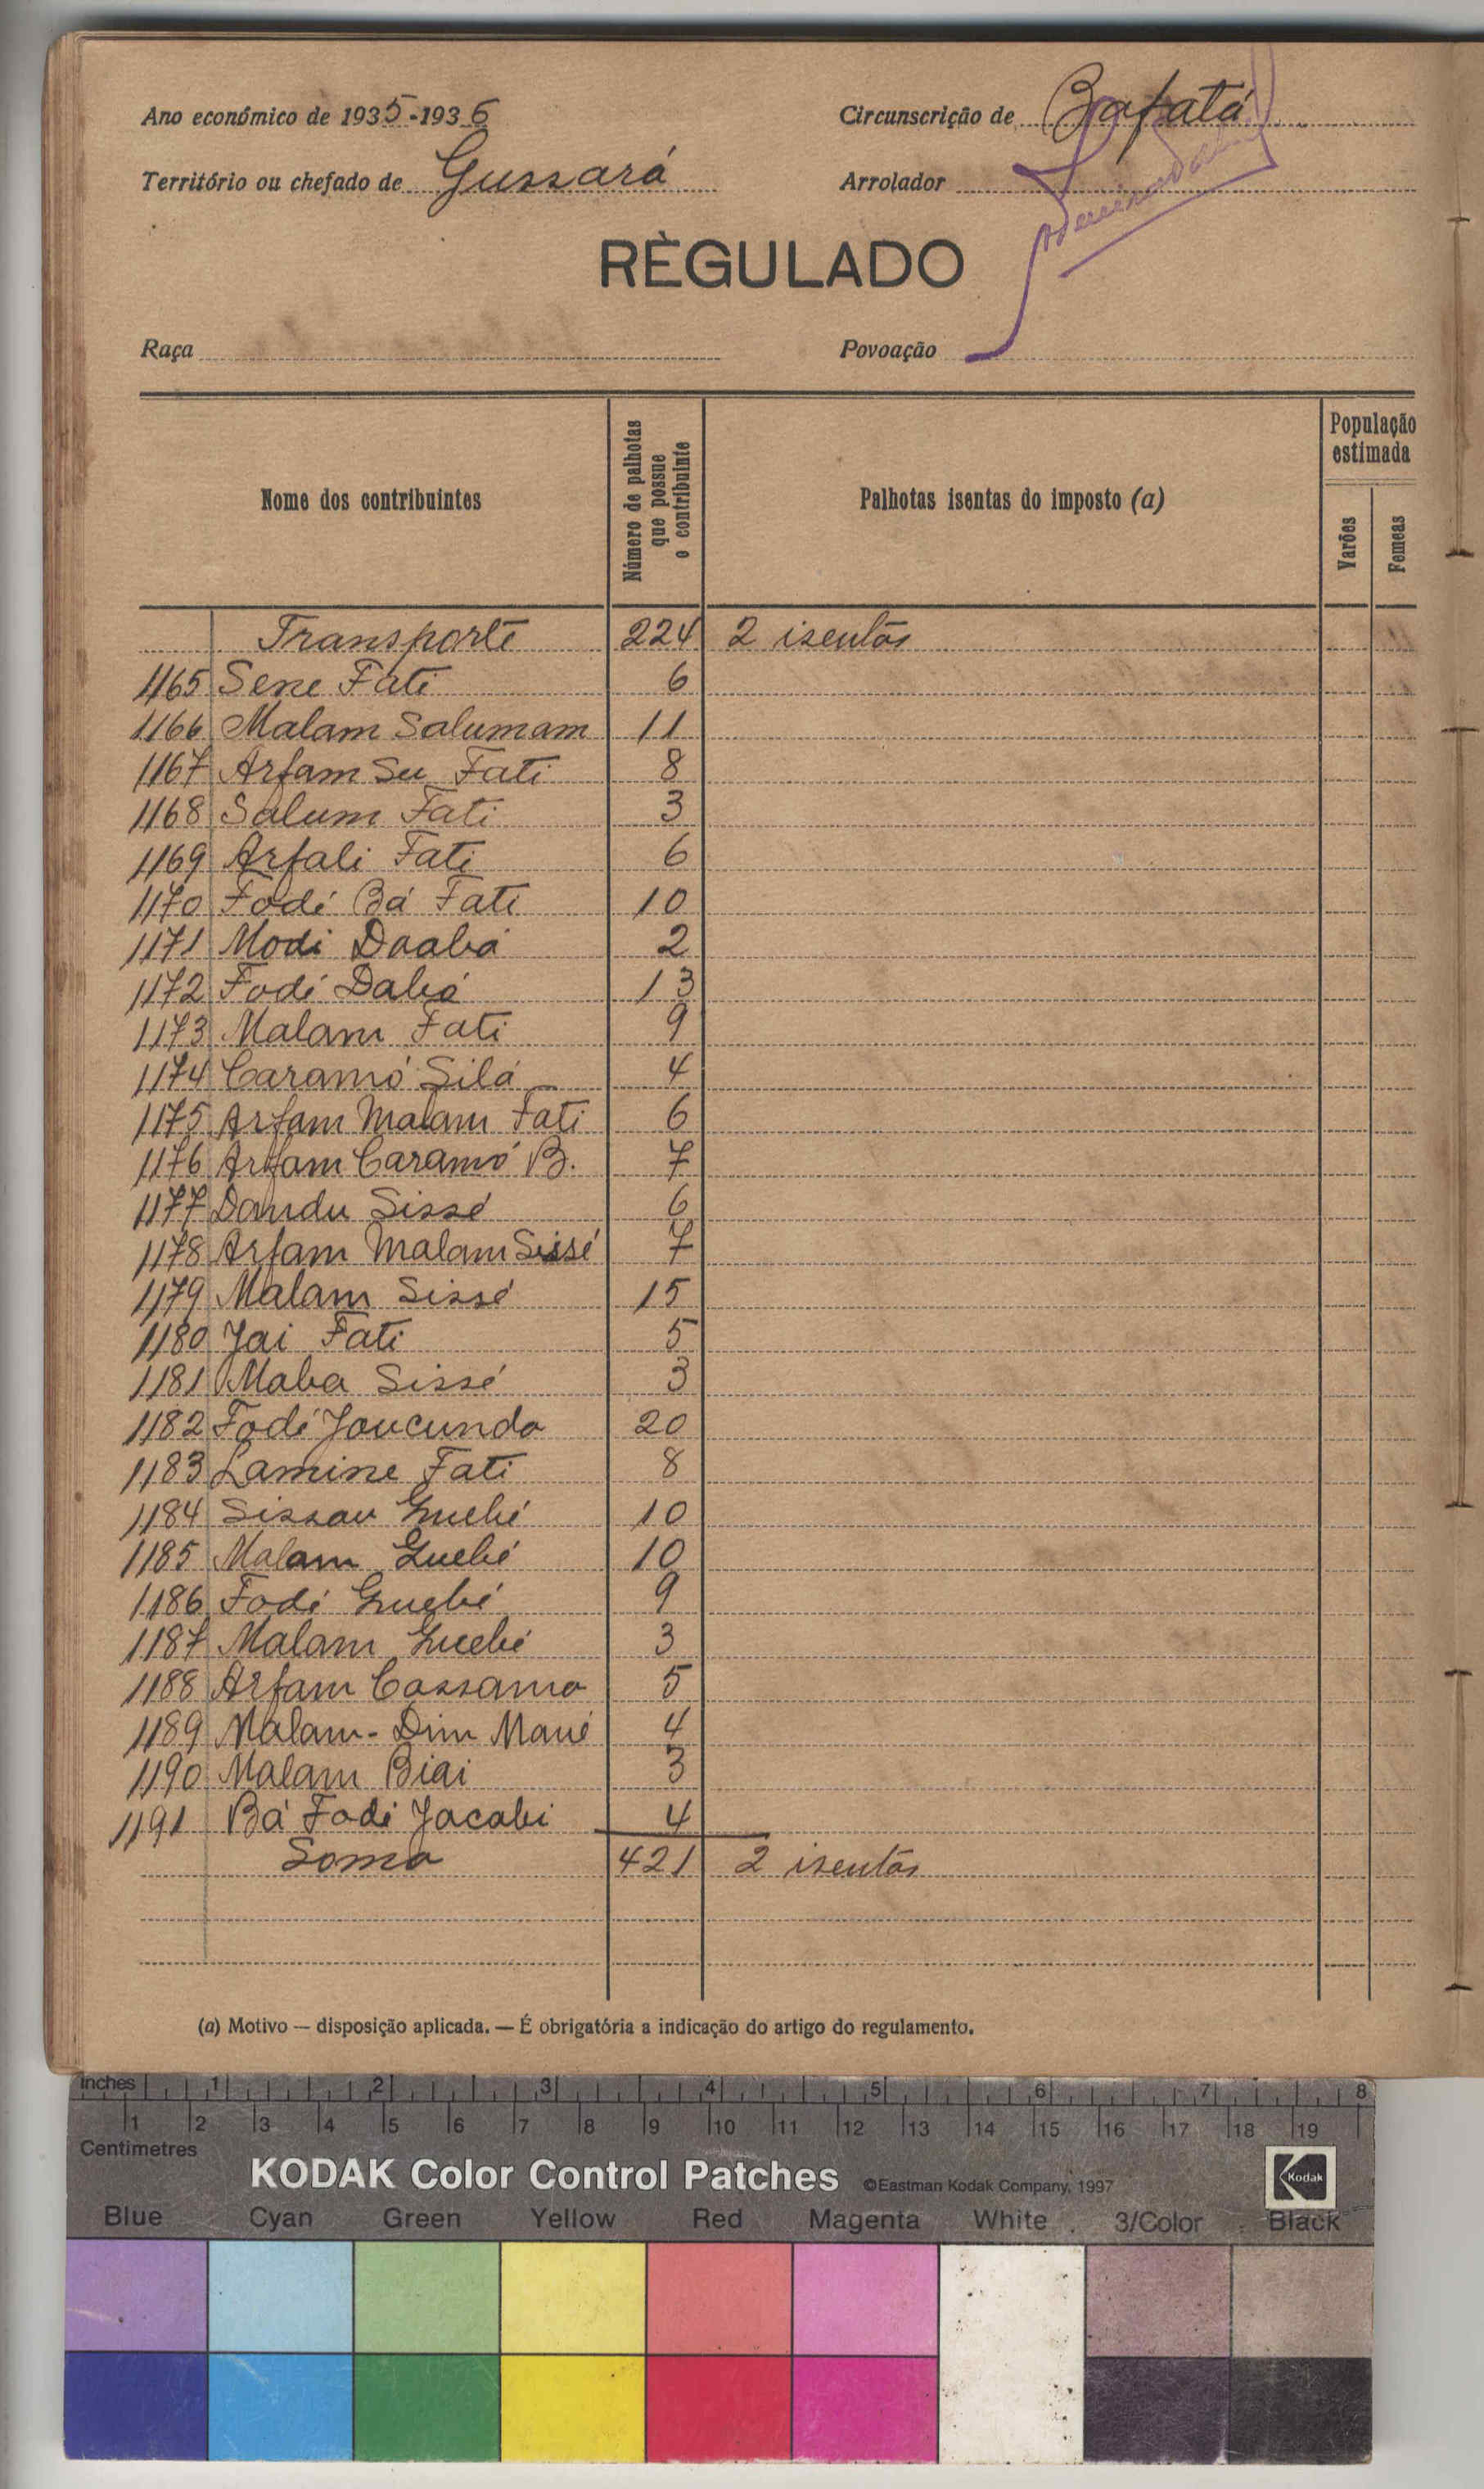 Ano económico de 1935-1936
Circunscrição de Bafatá
Território ou chefado de Gussará
Arrolador
RÈGULADO
Raça
Povoação
Nome dos contribuintes
Número de palhotas que possue o contribuinte
Palhotas isentas do imposto (a)
População estimada
Varões
Femeas
Transporte 224 2 isentas
1165 Sene Fati 6
1166 Malam Salumam 11
1167 Arfam Su Fati 8
1168 Salum Fati 3
1169 Arfali Fati 6
1170 Fodé Bá Fati 10
1171 Modi Daabó 2
1172 Fodé Dabó 13
1173 Malam Fati 9
1174 Caramó Silá 4
1175 Arfam Malam Fati 6
1176 Arfam Caramó B. 7
1177 Dandu Sissé 6
1178 Arfam Malam Sissé 7
1179 Malam Sissé 15
1180 Jai Fati 5
1181 Maba Sissé 3
1182 Fodé Joucunda 20
1183 Lamine Fati 8
1184 Sissau Guebé 10
1185 Malam Guebé 10
1186 Fodé Guebé 9
1187 Malam Guebé 3
1188 Arfam Cassama 5
1189 Malam-Dim Mané 4
1190 Malam Biai 3
1191 Bá Fodé Jacabi 4
Soma 421 2 isentas
(a) Motivo — disposição aplicada. — É obrigatória a indicação do artigo do regulamento.
Inches 1 2 3 4 5 6 7 8
1 2 3 4 5 6 7 8 9 10 11 12 13 14 15 16 17 18 19
Centimetres
KODAK Color Control Patches ©Eastman Kodak Company, 1997 Kodak
Blue Cyan Green Yellow Red Magenta White 3/Color Black